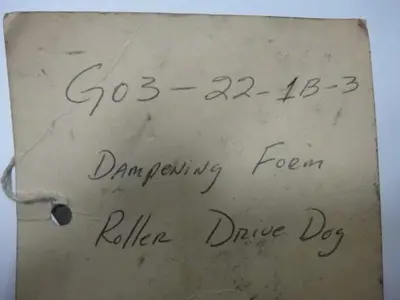 G03-22-1B-3
Dampening Form
Roller Drive Dog